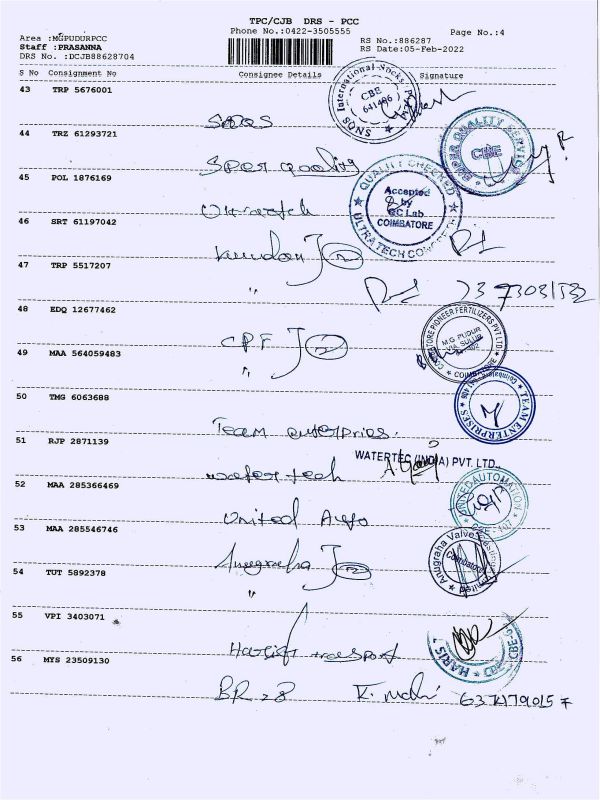 TPC/CJB DRS - PCC
Phone No.:0422-3505555
Page No.:4
Area :MGPUDURPCC
Staff :PRASANNA
DRS No. :DCJB88628704
RS No.:886287
RS Date:05-Feb-2022
S No Consignment No Consignee Details Signature
43 TRP 5676001
SNQS
SNQS International Socks
CBE
641406
44 TRZ 61293721
Sper quality
SUPER QUALITY SERVICE
CBE
45 POL 1876169
Ultratech
QUALITY CHECKED
Accepted
by
QC Lab
COIMBATORE
46 SRT 61197042
kundan
47 TRP 5517207
"
48 EDQ 12677462
CPF
COIMBATORE PIONEER FERTILIZERS PVT LTD
M.G. PUDUR
VIA SULUR
COIMBATORE
49 MAA 564059483
"
50 TMG 6063688
Team enterpries.
TEAM ENTERPRISES
51 RJP 2871139
watertech
WATERTEC (INDIA) PVT. LTD.,
52 MAA 285366469
United Auto
UNITED AUTOMATION
53 MAA 285546746
Anugraha
Anugraha Valve Castings Limited
Coimbatore
54 TUT 5892378
55 VPI 3403071
transport
HARIS
56 MYS 23509130
BR 28
6374179015 7